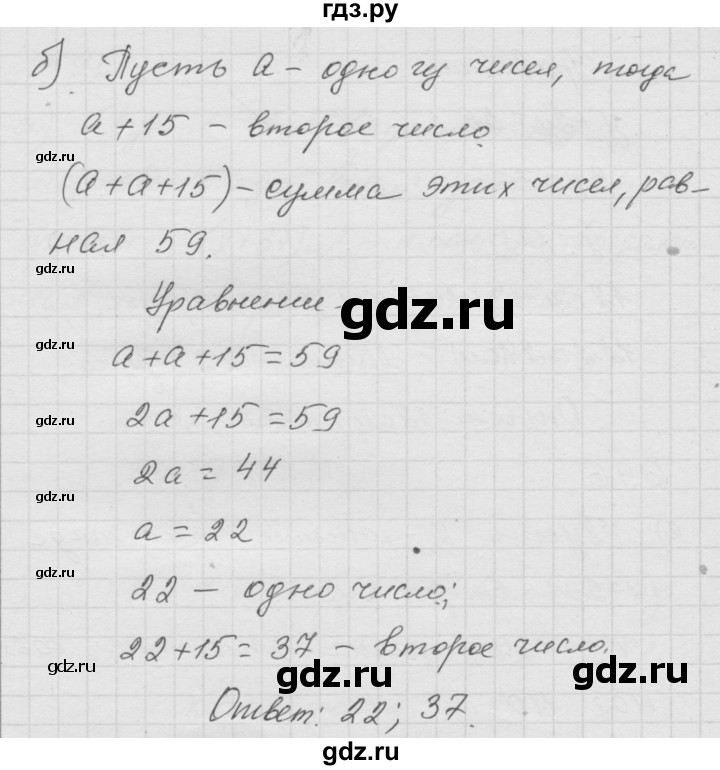 гдз.ру
б) Пусть а – одно из чисел, тогда
а + 15 – второе число.
gdz.ru
(а + а + 15) – сумма этих чисел, рав-
ная 59.
gdz.ru
Уравнение
gdz.ru
gdz.ru
а + а + 15 = 59
gdz.ru
2а + 15 = 59
gdz.ru
2а = 44
gdz.ru
а = 22
gdz.ru
22 – одно число;
22 + 15 = 37 – второе число.
gdz.ru
gdz.ru
gdz.ru
Ответ: 22; 37.
gdz.ru